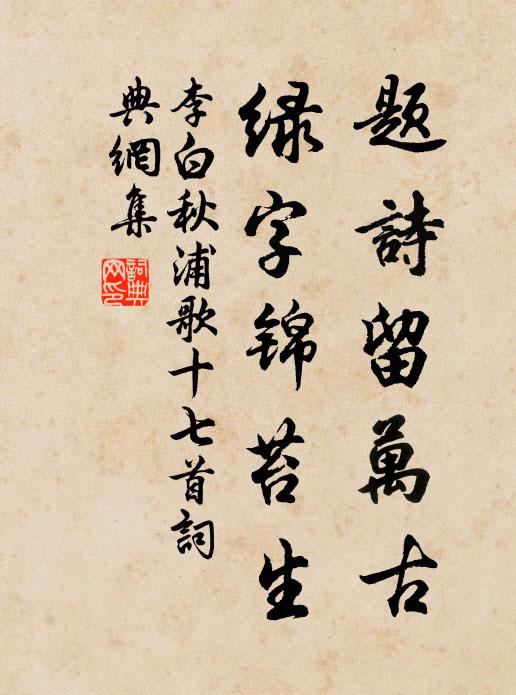 題詩留萬古
緑字錦苔生
李白秋浦歌十七首詞
典網集
詞典
网印